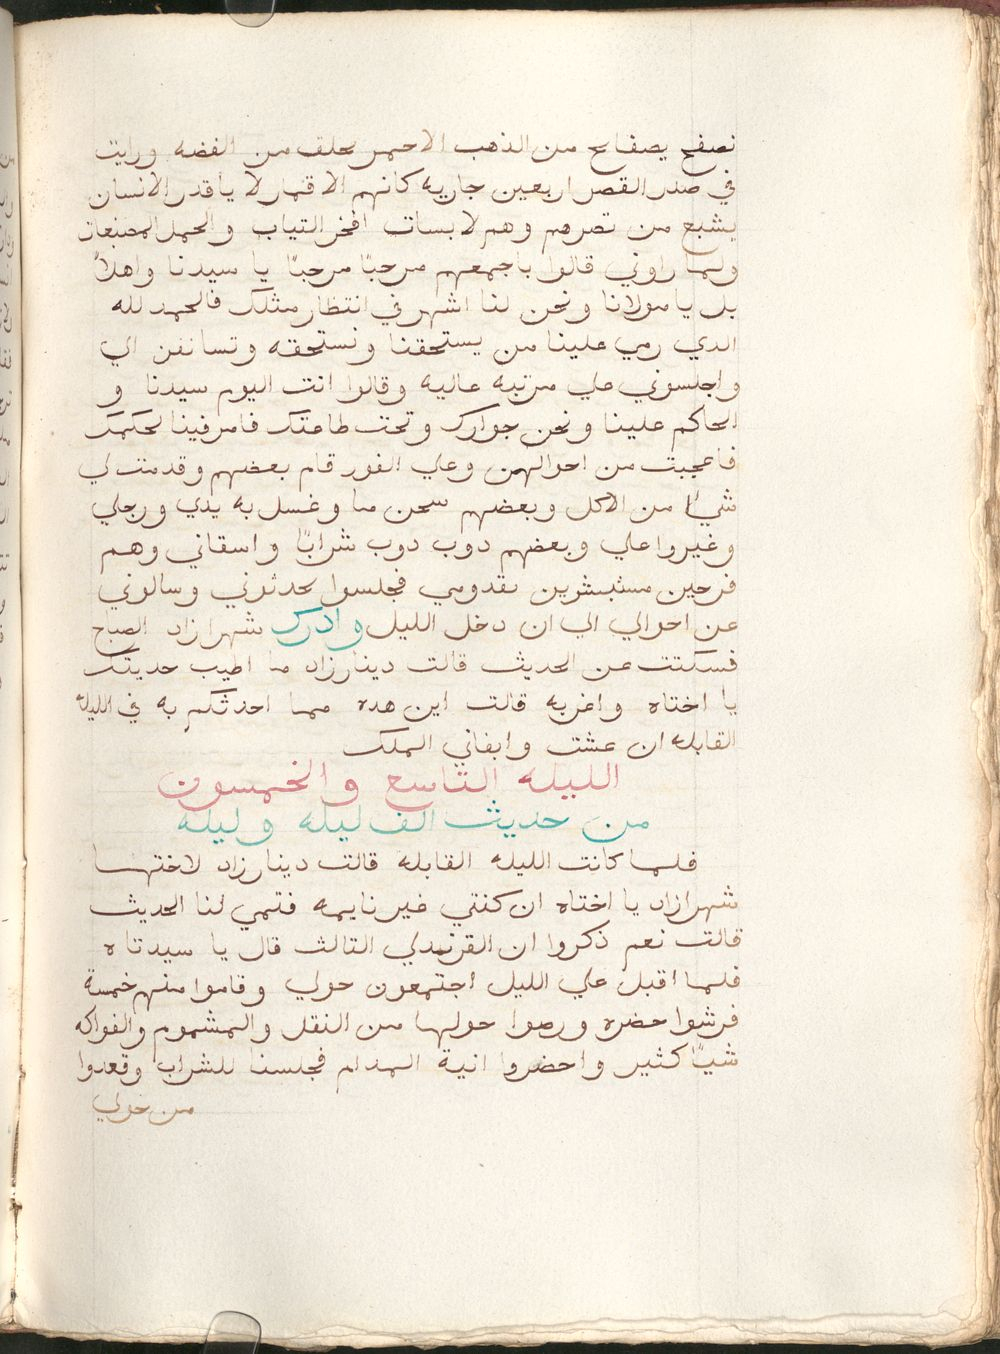 نصفح بصفايح من الذهب الاحمر بحلق من الفضه ورايت
في صدر القصر اربعين جاريه كانهم الاقمار لا ياقدر الانسان
يشبع من نضرهم وهم لابسات افخر التياب والحمل المصنعات
ولما راوني قالوا باجمعهم مرحبًا مرحبًا يا سيدنا واهلاً
بك يا مولانا ونحن لنا اشهر في انتظار مثلك فالحمد لله
الدي رمي علينا من يستحقنا ونستحقه وتسانفن الي
واجلسوني علي مرتبه عاليه وقالوا انت اليوم سيدنا و
الحاكم علينا ونحن جوارك وتحت طاعتك فامر فينا بحكمك
فاعجبت من احوالهمن وعلي الفور قام بعضهم وقدمت لي
شيًا من الاكل وبعضهم سحن ما وغسل به يدي ورجلي
وغيروا علي وبعضهم دوب دوب شرابًا واسقاني وهم
فرحين مستبشرين بقدومي فجلسوا بحدثوني وسالوني
عن احوالي الي ان دخل الليل وادرك شهرازاد الصباح
فسكتت عن الحديث قالت دينارزاد ما اطيب حديتك
يا اختاه واغربه قالت اين هده مما احدثكم به في الليله
القابله ان عشت وابقاني الملك
الليله التاسع والخمسون
من حديث الف ليله وليله
فلما كانت الليله القابله قالت دينارزاد لاختها
شهرازاد يا اختاه ان كنتي غير نايمه فتمي لنا الحديث
قالت نعم ذكروا ان القرندلي التالث قال يا سيدتاه
فلما اقبل علي الليل اجتمعون حولي وقاموا منهم خمسة
فرشوا حضره ورصوا حولها من النقل والمشموم والفواكه
شيًا كثير واحضروا انية المدام فجلسنا للشراب وقعدوا
من حولي